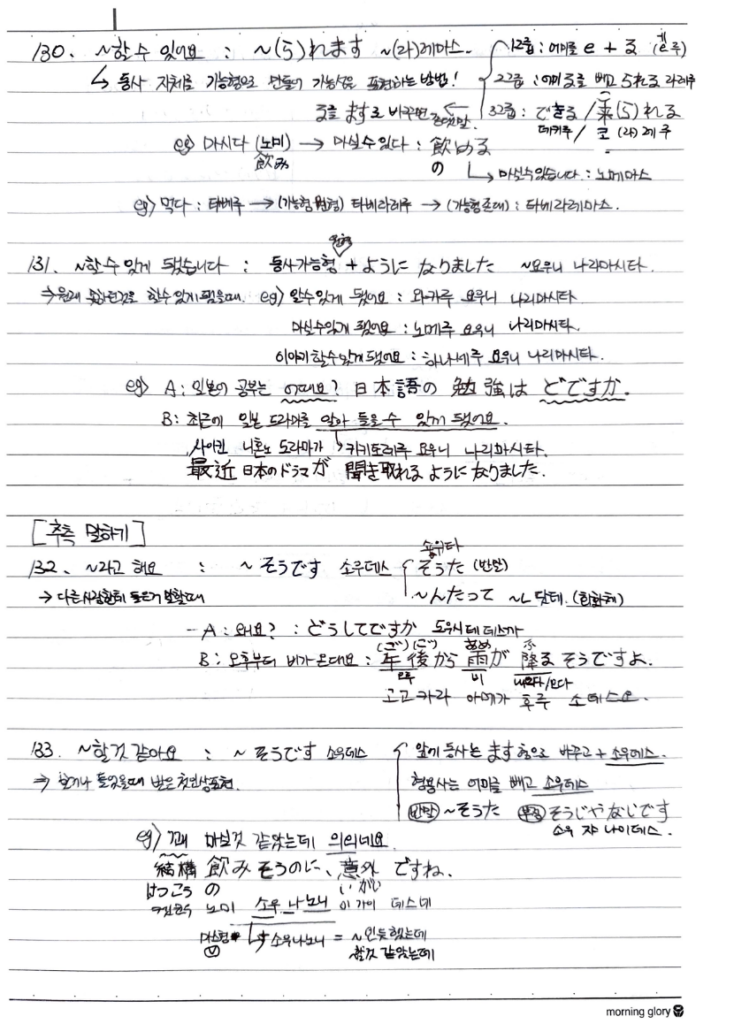 130. ~할 수 있어요 : ~(ら)れます ~(라)레마스.
1그룹 : 어미를 e + る (e 루)
↳ 동사 자체를 가능형으로 만들어 가능성을 표현하는 방법!
2그룹 : 어미 る를 빼고 られる 라레루
る를 ます로 바꾸면 존댓말.
3그룹 : できる / 来(ら)れる
데키루 / 코 (라)레루
eg) 마시다 (노미) → 마실 수 있다 : 飲める
飲み の ↳ 마실 수 있습니다 : 노메마스
eg) 먹다 : 타베루 → (가능형 원형) 타베라레루 → (가능형 존대) : 타베라레마스.
131. ~할 수 있게 됐습니다 : 동사가능형 + ように なりました ~요우니 나리마시타.
eg) 알 수 있게 됐어요 : 와카루 요우니 나리마시타.
마실 수 있게 됐어요 : 노메루 요우니 나리마시타.
이야기 할 수 있게 됐어요 : 하나세루 요우니 나리마시타.
eg) A : 일본어 공부는 어때요? 日本語の 勉強は どですか.
B : 최근에 일본 드라마를 알아 들을 수 있게 됐어요.
사이킨 니혼노 도라마가 키키토레루 요우니 나리마시타.
最近 日本のドラマが 聞き取れる ように なりました.
[추측 말하기]
132. ~라고 해요 : ~ そうです 소우데스
소우타
そうた (반말)
→ 다른사람한테 들은거 말할때
~んたって ~ㄴ 닸테. (회화체)
- A : 왜요? : どうしてですか 도우시테 데스까
(ご) (ご) あめ ふ
B : 오후부터 비가 온대요 : 午後から 雨が 降る そうですよ.
오후 비 내리다/오다
고고카라 아메가 후루 소데스요.
133. ~할것 같아요 : ~ そうです 소우데스
앞에 동사는 ます형으로 바꾸고 + 소우데스.
형용사는 어미를 빼고 소우데스
반말 ~そうた 부정 そうじゃないです
소우 쟈 나이데스.
eg) 꽤 마실것 같았는데 의외네요.
結構 飲み そうのに、意外 ですね.
けっこう の いがい
노미 소우 나노니 이가이 데스네
마스형 ↳ 소우나노니 = ~인듯했는데
할것 같았는데
morning glory